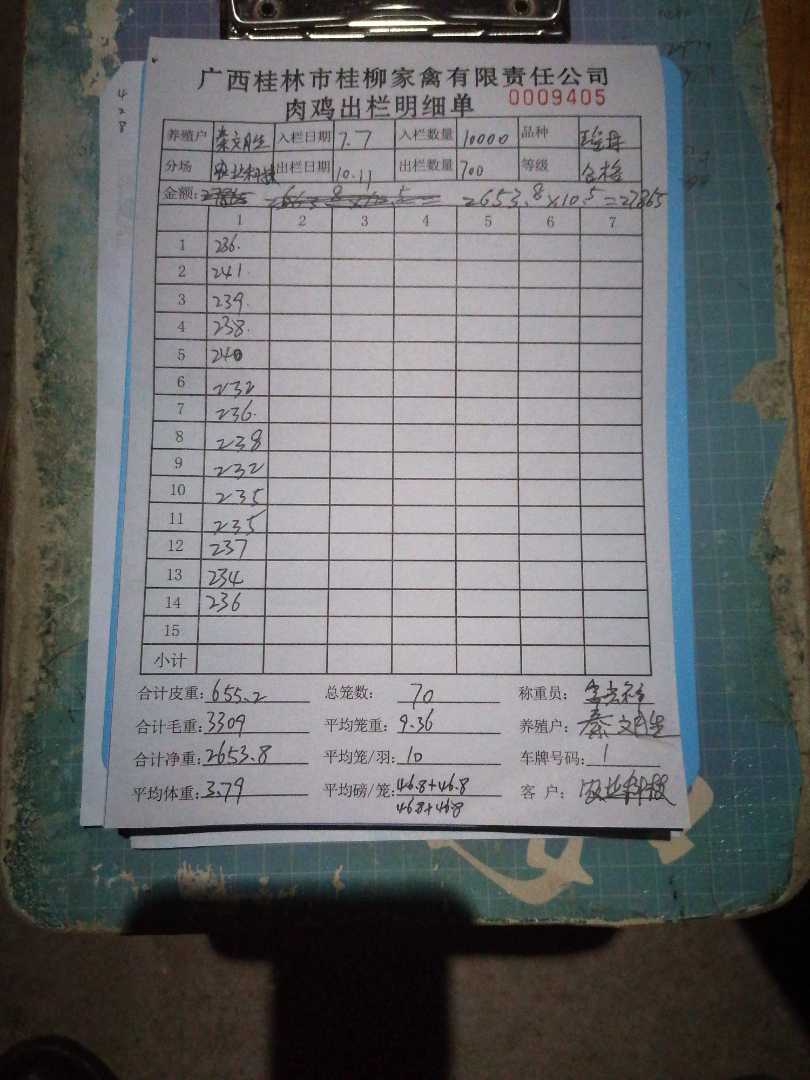 广西桂林市桂柳家禽有限责任公司
肉鸡出栏明细单 0009405
养殖户 秦文月生 入栏日期 7.7 入栏数量 10000 品种
分场 农业科技 出栏日期 10.11 出栏数量 700 等级 合格
金额: 27865 2653.8×10.5= 2653.8×10.5=27865
1 2 3 4 5 6 7
1 236.
2 241.
3 239.
4 238.
5 240
6 232
7 236.
8 238
9 232
10 235
11 235
12 237
13 234
14 236
15
小计
合计皮重: 655.2 总笼数: 70 称重员:
合计毛重: 3309 平均笼重: 9.36 养殖户: 秦文月生
合计净重: 2653.8 平均笼/羽: 10 车牌号码: 1
平均体重: 3.79 平均磅/笼: 46.8+46.8 客户: 农业科技
46.8+46.8
428